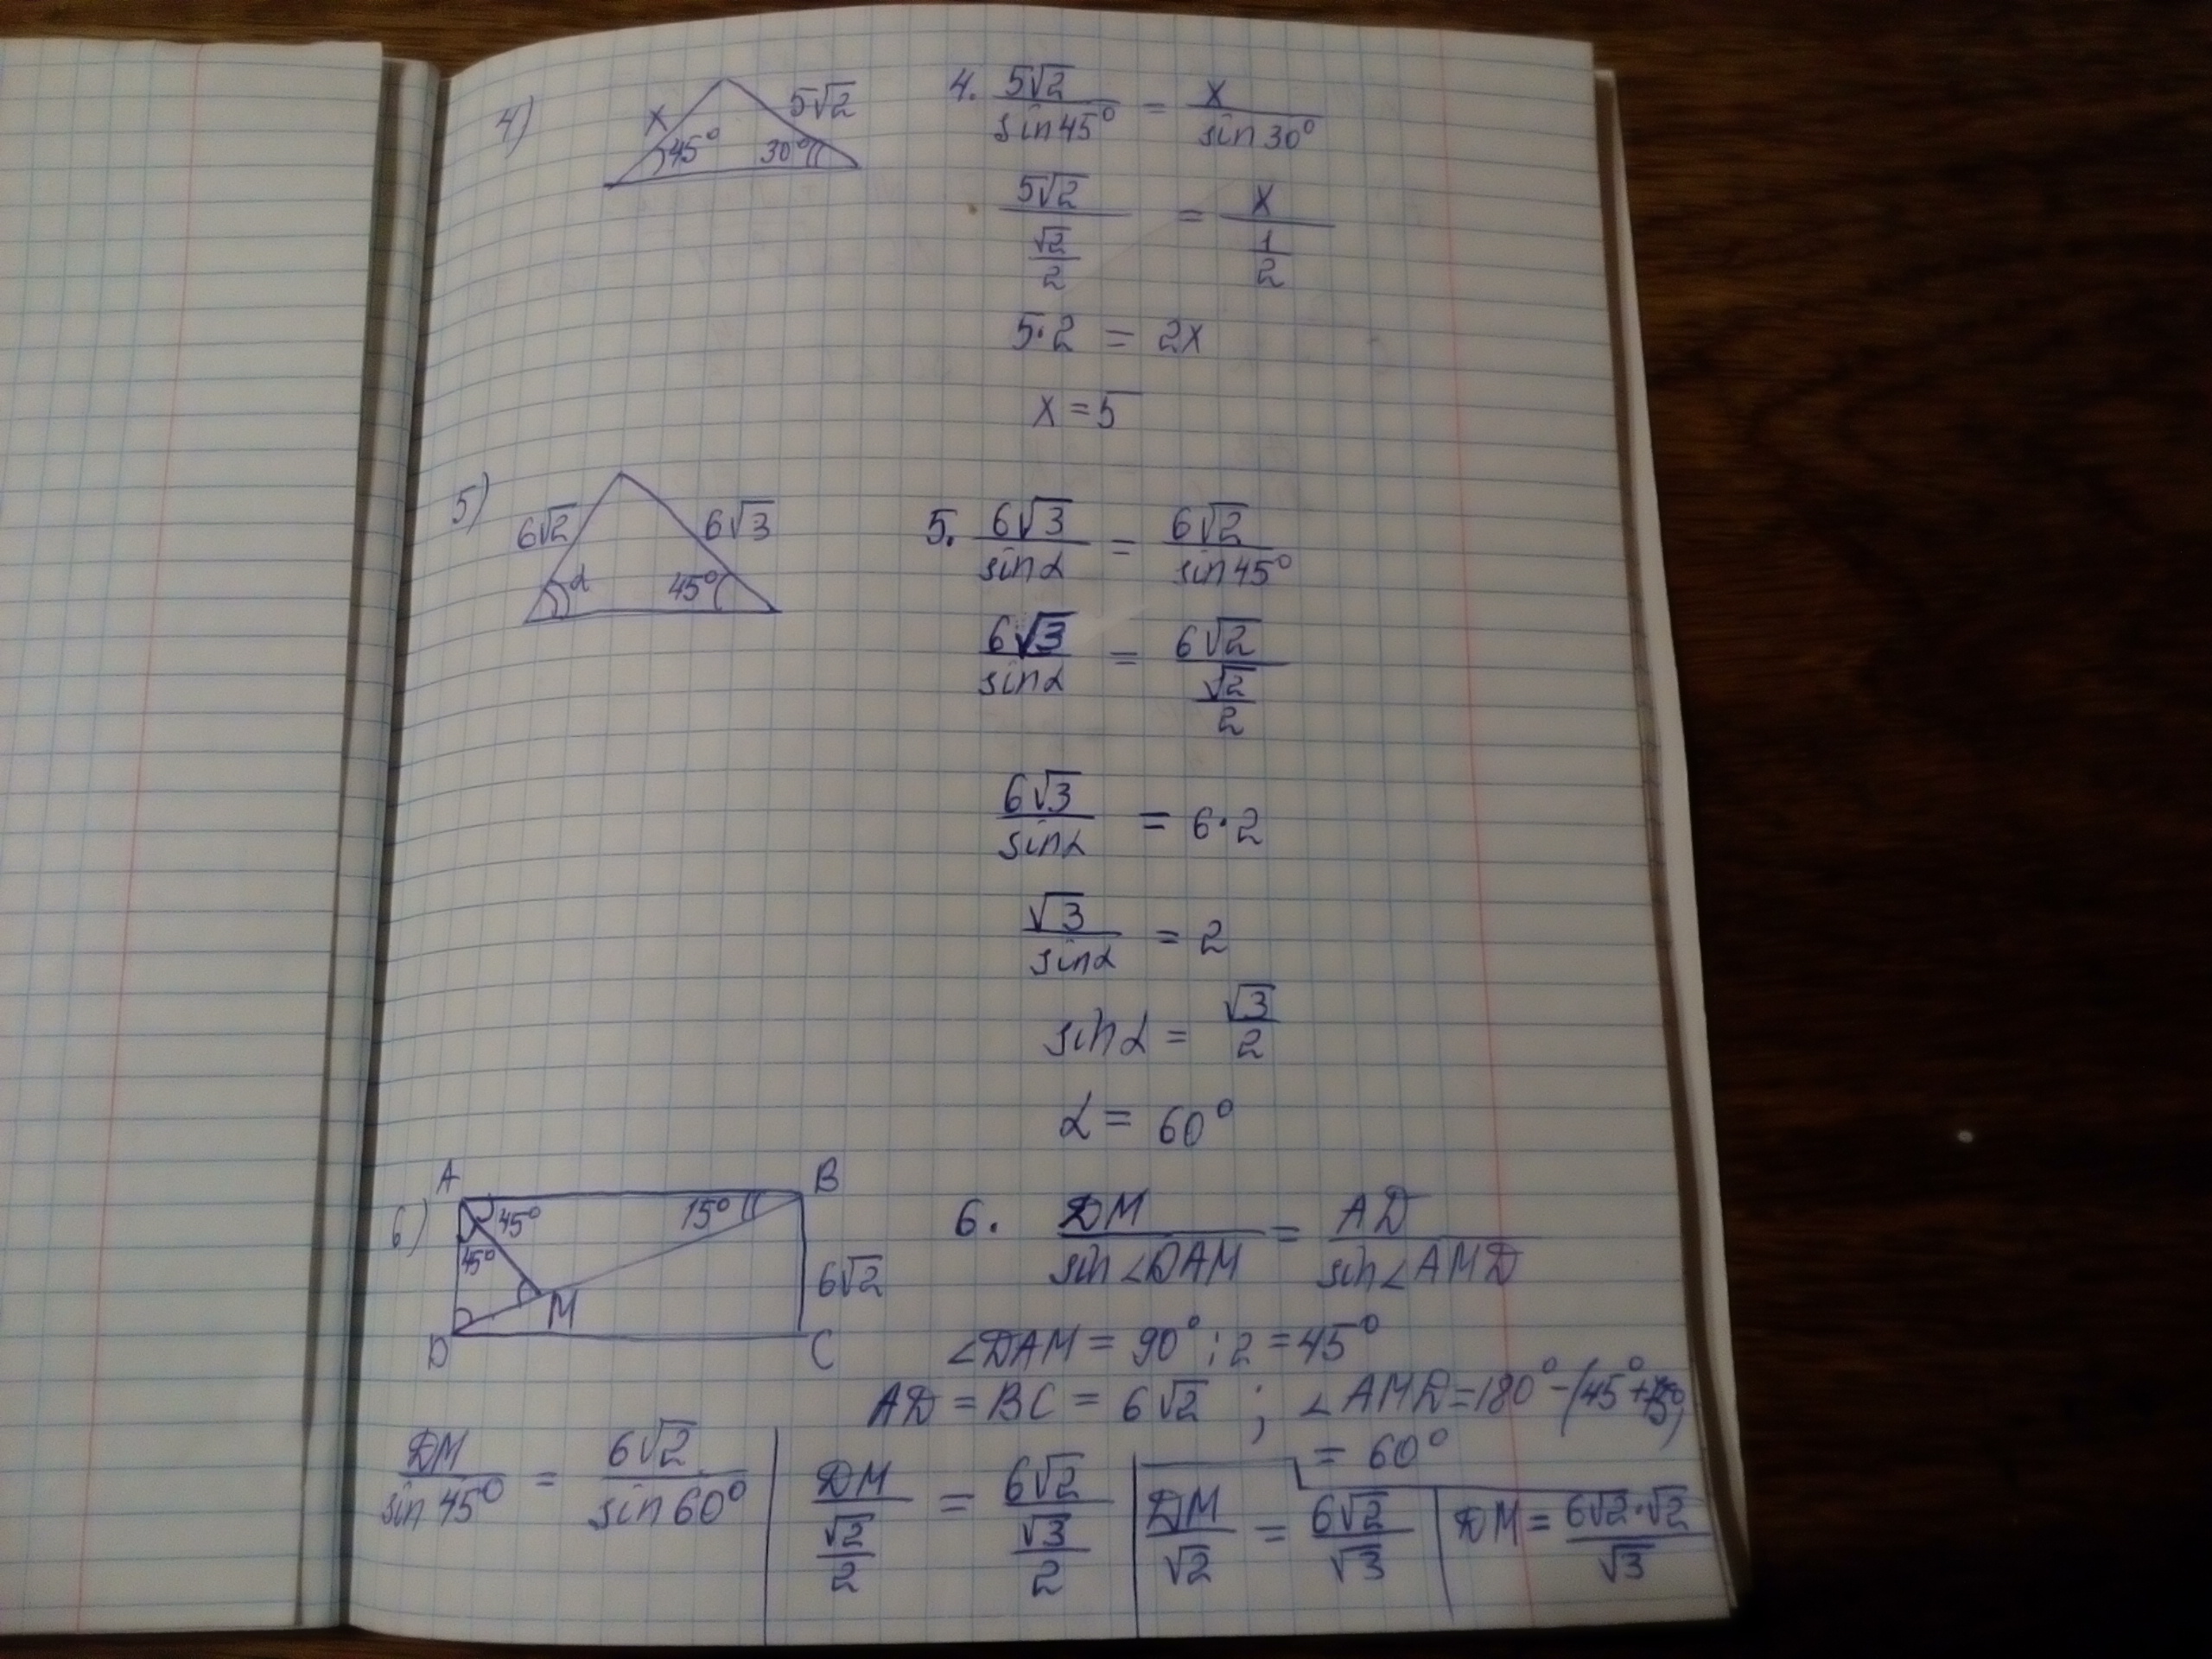 4)
x 5√2
45° 30°
4. 5√2/sin45° = x/sin30°
5√2/(√2/2) = x/(1/2)
5·2 = 2x
x = 5
5)
6√2 6√3
α 45°
5. 6√3/sinα = 6√2/sin45°
6√3/sinα = 6√2/(√2/2)
6√3/sinα = 6·2
√3/sinα = 2
sinα = √3/2
α = 60°
6)
A B
45° 15°
45°
6√2
M
D C
6. DM/sin∠DAM = AD/sin∠AMD
∠DAM = 90° : 2 = 45°
AD = BC = 6√2 ; ∠AMD = 180° - (45° +
= 60°
DM/sin45° = 6√2/sin60°
DM/(√2/2) = 6√2/(√3/2)
DM/√2 = 6√2/√3
DM = 6√2·√2/√3